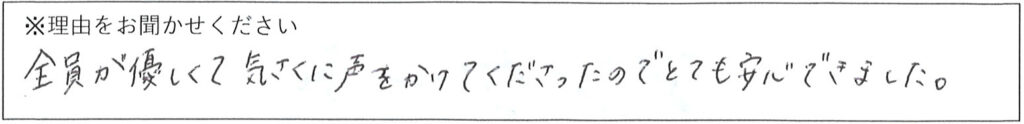 ※理由をお聞かせください
全員が優しくて気さくに声をかけてくださったのでとても安心できました。